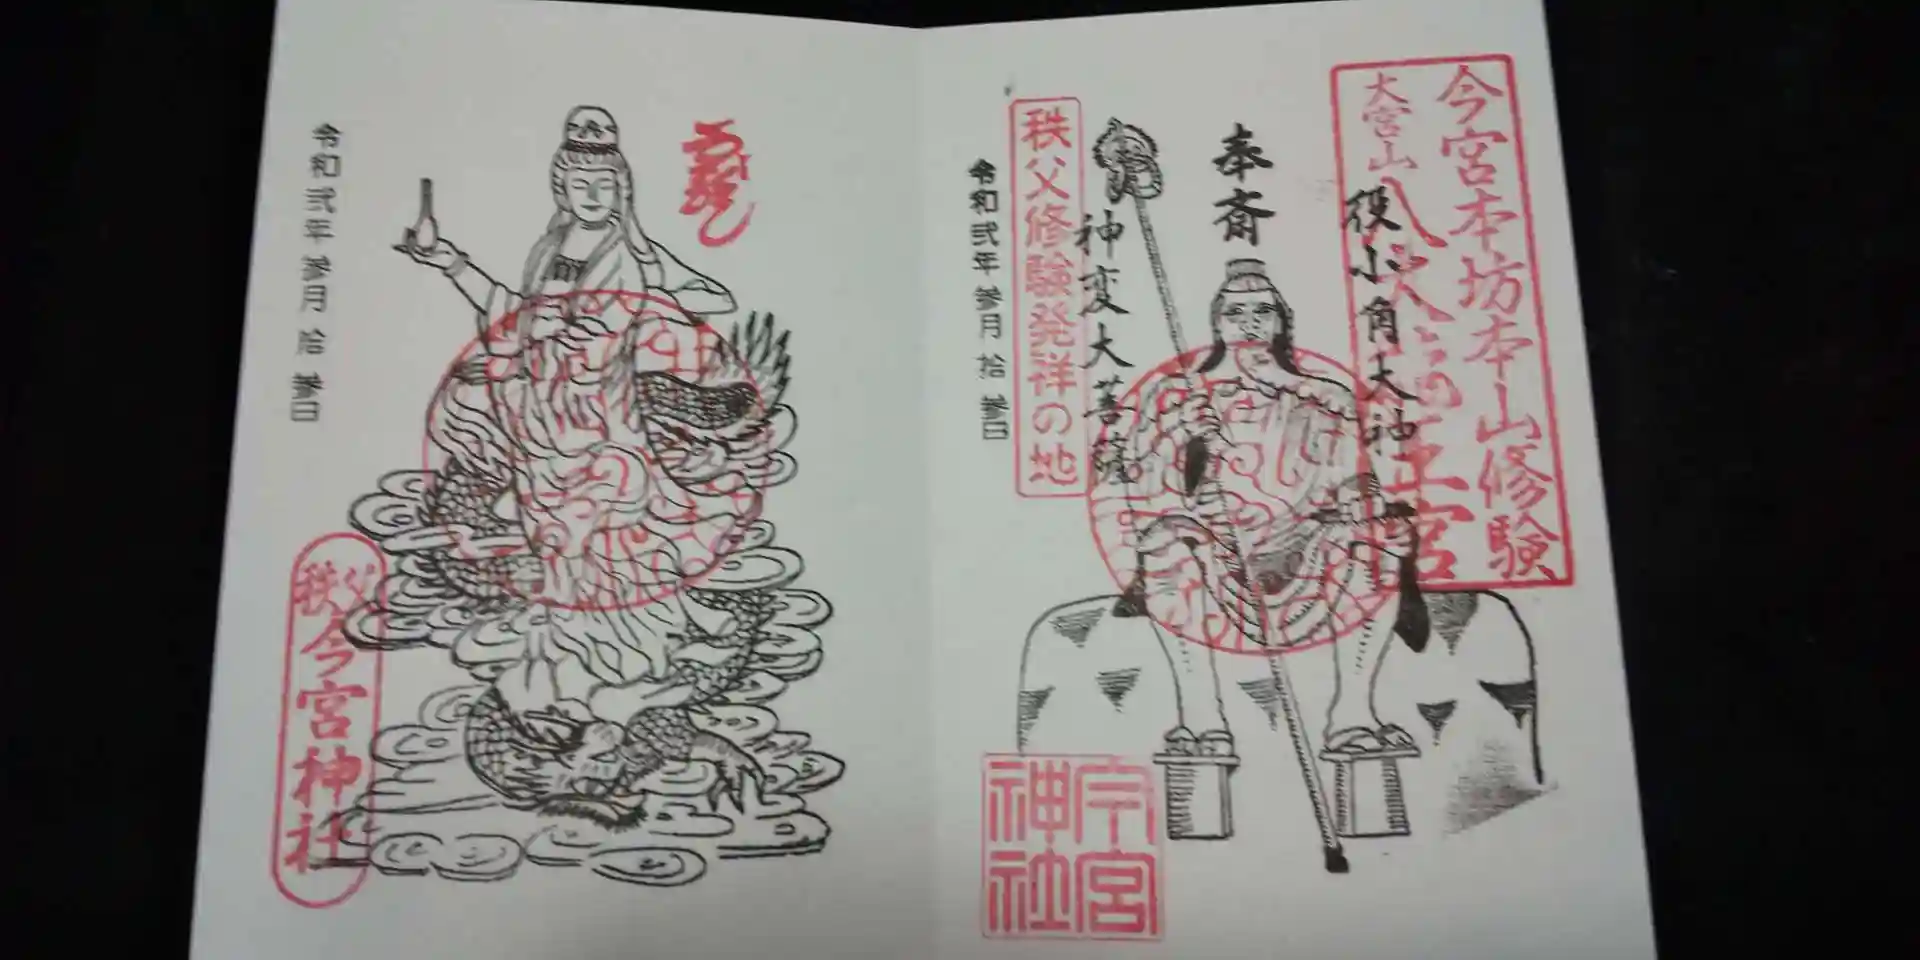 今宮本坊本山修験
大宮山
八大
王宮
役小角大神
奉斎
神変大菩薩
秩父修験発祥の地
令和弐年 参月 拾 参日
今宮
神社
令和弐年 参月 拾 参日
秩父
今宮神社